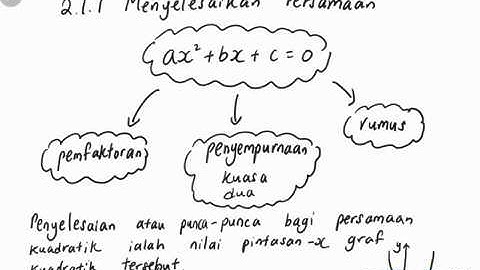 2.1.1 Menyelesaikan Persamaan
ax² + bx + c = 0
pemfaktoran
penyempurnaan
kuasa
dua
rumus
Penyelesaian atau punca-punca bagi persamaan
kuadratik ialah nilai pintasan-x graf
kuadratik tersebut.
y